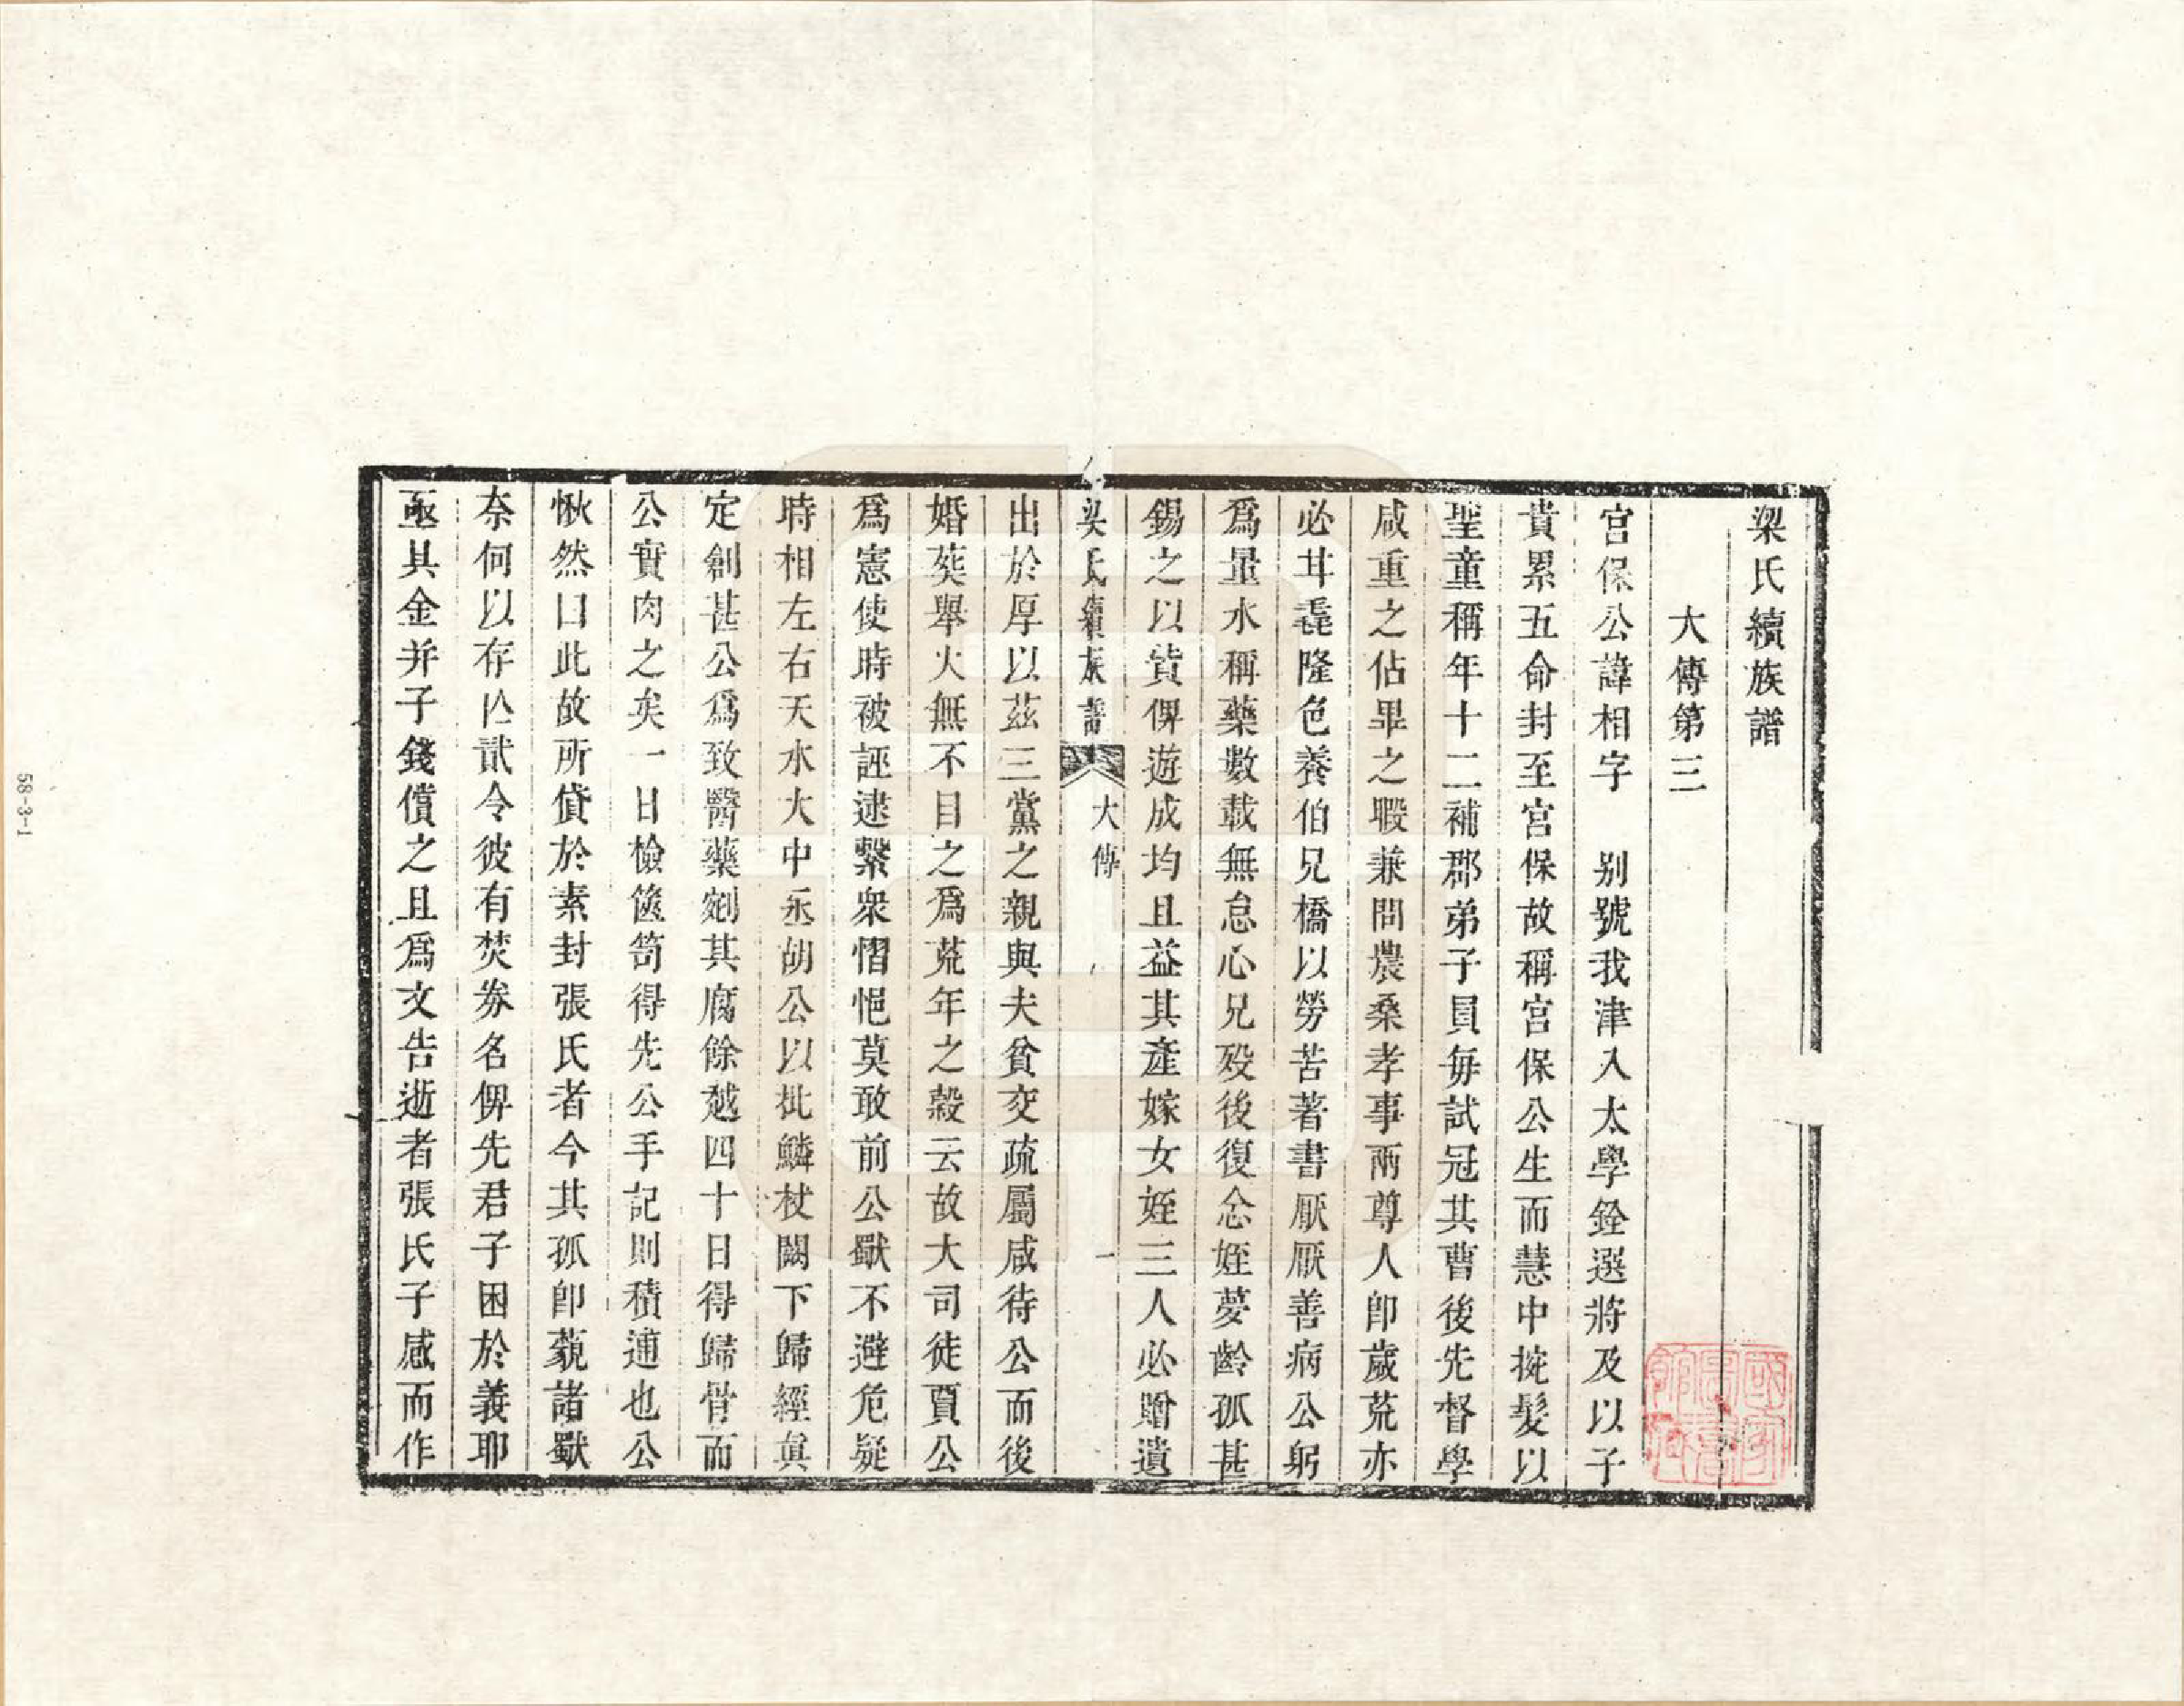 梁氏續族譜
大傳第三
宮保公諱相字　別號我津入太學銓選將及以子
貴累五命封至宮保故稱宮保公生而慧中㧓髮以
聖童稱年十二補郡弟子員每試冠其曹後先督學
咸重之佔畢之暇兼問農桑孝事兩尊人卽歲荒亦
必甘毳隆色養伯兄橋以勞苦著書厭厭善病公躬
爲量水稱藥數載無怠心兄歿後復念姪夢齡孤甚
錫之以貲俾遊成均且益其產嫁女姪三人必贈遺
梁氏續族譜
大傳
一
出於厚以茲三黨之親與夫貧交疏屬咸待公而後
婚葬舉火無不目之爲荒年之穀云故大司徒賈公
爲憲使時被誣逮繫衆慴悒莫敢前公獨不避危疑
時相左右天水大中丞胡公以批鱗杖闕下歸經眞
定創甚公爲致醫藥剜其腐餘越四十日得歸骨而
公實肉之矣一日檢篋笥得先公手記則積逋也公
愀然曰此故所貸於素封張氏者今其孤卽藐諸獸
柰何以存亾貳令彼有焚券名俾先君子困於義耶
亟具金并子錢償之且爲文告逝者張氏子感而作
58-3-1